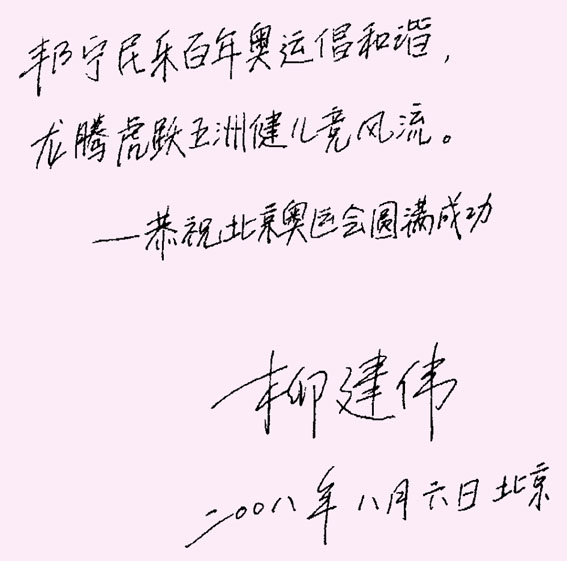 邦宁民乐百年奥运倡和谐，
龙腾虎跃五洲健儿竞风流。
——恭祝北京奥运会圆满成功
柳建伟
二〇〇八年八月六日北京